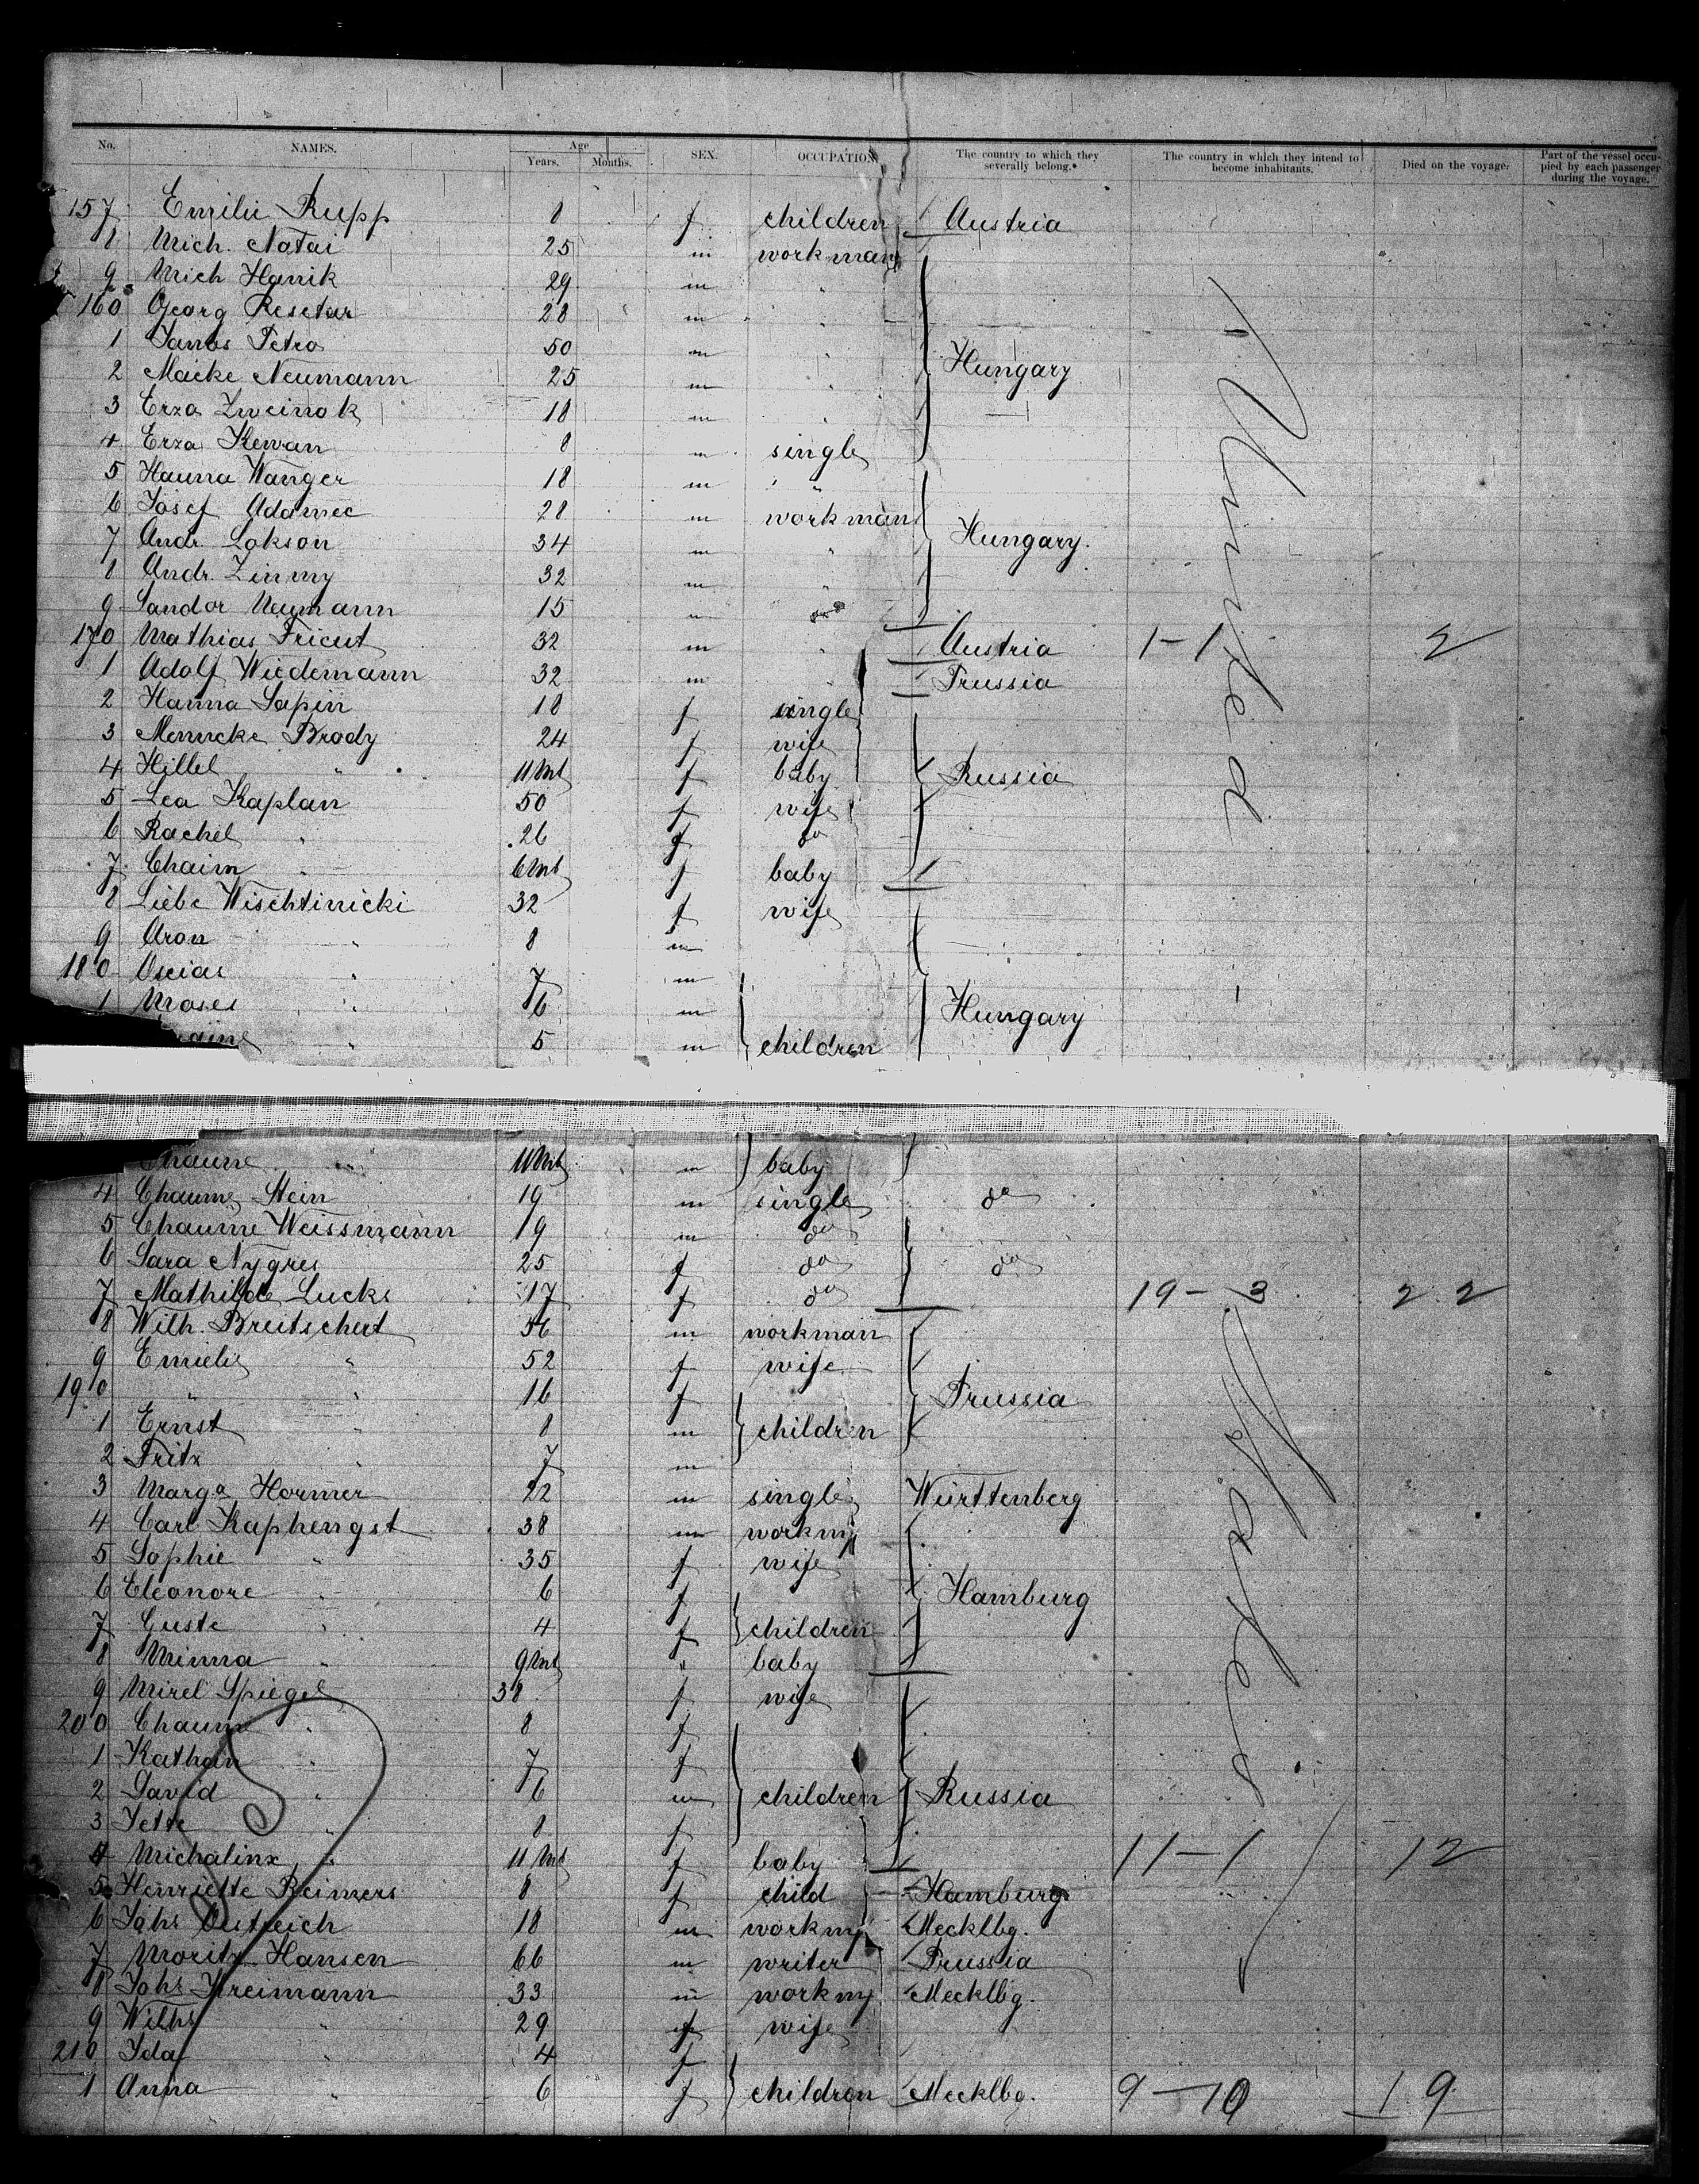 No. NAMES. Age Years. Months. SEX. OCCUPATION The country to which they severally belong.* The country in which they intend to become inhabitants. Died on the voyage. Part of the vessel occupied by each passenger during the voyage.
157 Emilie Rupp 8 f children Austria
8 Mich. Natai 25 m workman
9 Mich Hanik 29 m "
160 Georg Resetar 28 m "
1 Janos Petro 50 m "
2 Macke Neumann 25 m " Hungary
3 Erza 18 m "
4 Erza Kewan 8 m single
5 Hanna Wanger 18 m "
6 Josef Adamec 28 m workman
7 Andr. Lokson 34 m " Hungary.
8 Andr. Zinmy 32 m "
9 Sandor Neumann 15 m
170 Mathias Fricut 32 m " Austria 1-1 2
1 Adolf Wiedemann 32 m " Prussia
2 Hanna Sapin 18 f single
3 Menncke Brody 24 f wife
4 Hillel " 11 Mt f baby Russia
5 Lea Kaplan 50 f wife
6 Rachel " 26 f do
7 Chaim " 6 Mt f baby
8 Liebe Wischtinicki 32 f wife
9 Aron " 8 m
180 Oscias " 7 m
1 Moses " 6 m Hungary
" 5 m children
Chaune " 11 Mt m baby
4 Chaume Stein 19 m single do
5 Chaume Weissmann 19 m do
6 Sara Nygres 25 f do do
7 Mathilde Lucks 17 f do 19-3 22
8 Wilh. Breitschert 56 m workman
9 Emielie " 52 f wife
190 " " 16 f Prussia
1 Ernst " 8 m children
2 Fritz " 7 m
3 Marga Hormer 22 m single Württenberg
4 Carl Kaphengst 38 m workm
5 Sophie " 35 f wife
6 Eleonore " 6 f Hamburg
7 Guste " 4 f children
8 Minna " 9 Mt " baby
9 Mirel Spiegel 38 f wife
200 Chaume " 8 f
1 Kathan " 7 f
2 David " 6 m children Russia
3 Jette " 8 f
4 Michalinx " 11 Mt f baby 11-1 12
5 Henriette Reimers 8 f child Hamburg
6 Johs Oestreich 18 m workm Mecklbg.
7 Moritz Hansen 66 m writer Prussia
8 Johs Kreimann 33 m workm Mecklbg.
9 Wilhe " 29 f wife
210 Ida " 4 f
1 Anna " 6 f children Mecklbg. 9-10 19